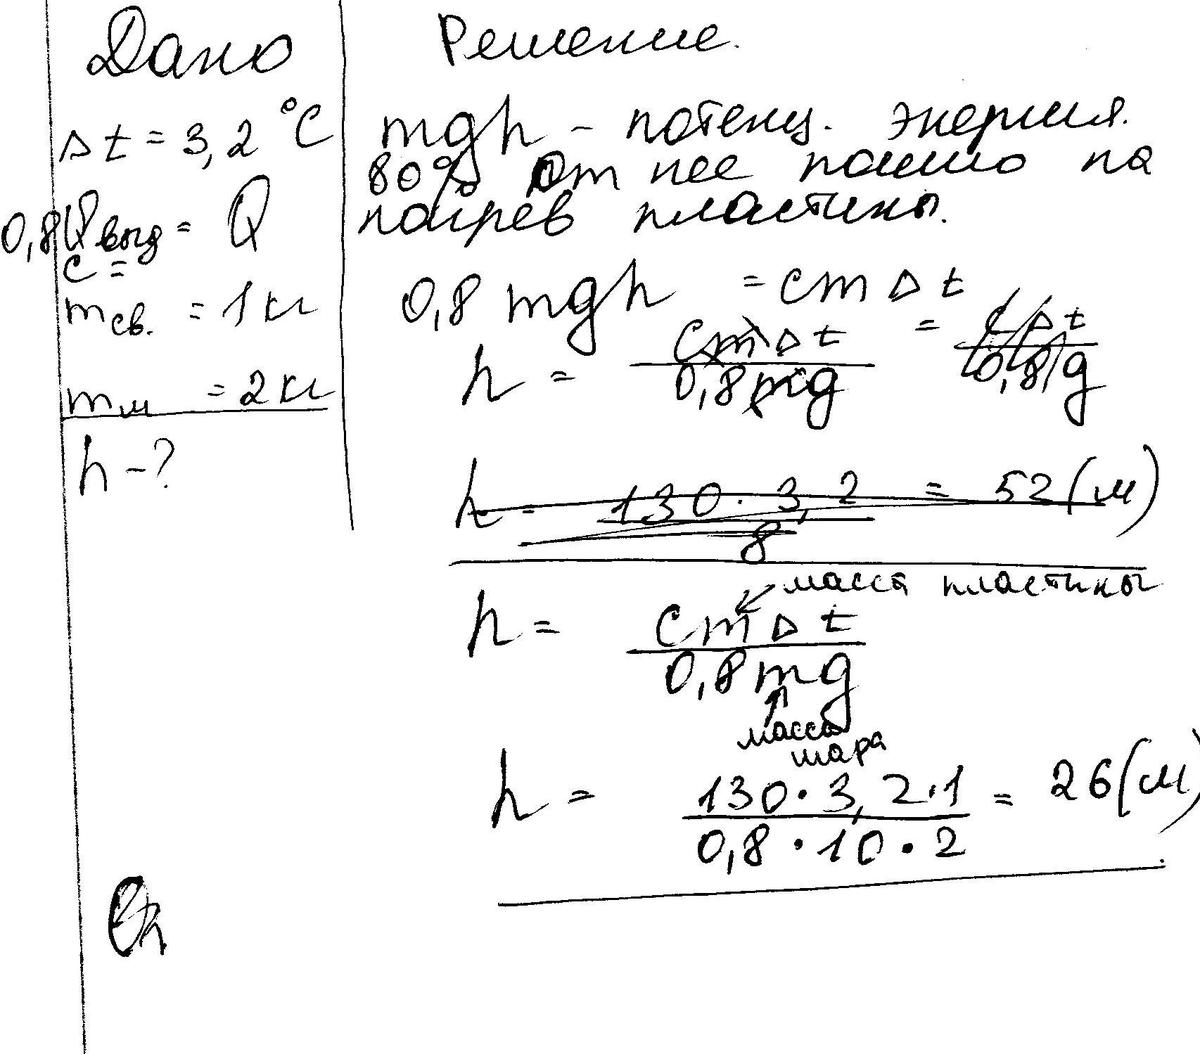 Дано
Δt = 3,2 °C
0,8Qвыд = Q
c =
mсв. = 1 кг
mш = 2 кг
h - ?
Решение.
mgh - потенц. энергия.
80% от нее пошло на
нагрев пластины.
0,8 mgh = cmΔt
h = cmΔt / 0,8mg = cΔt / 0,8g
h = 130 · 3,2 / 8 = 52 (м)
масса пластины
h = cmΔt / 0,8mg
масса
шара
h = 130 · 3,2 · 1 / 0,8 · 10 · 2 = 26 (м)